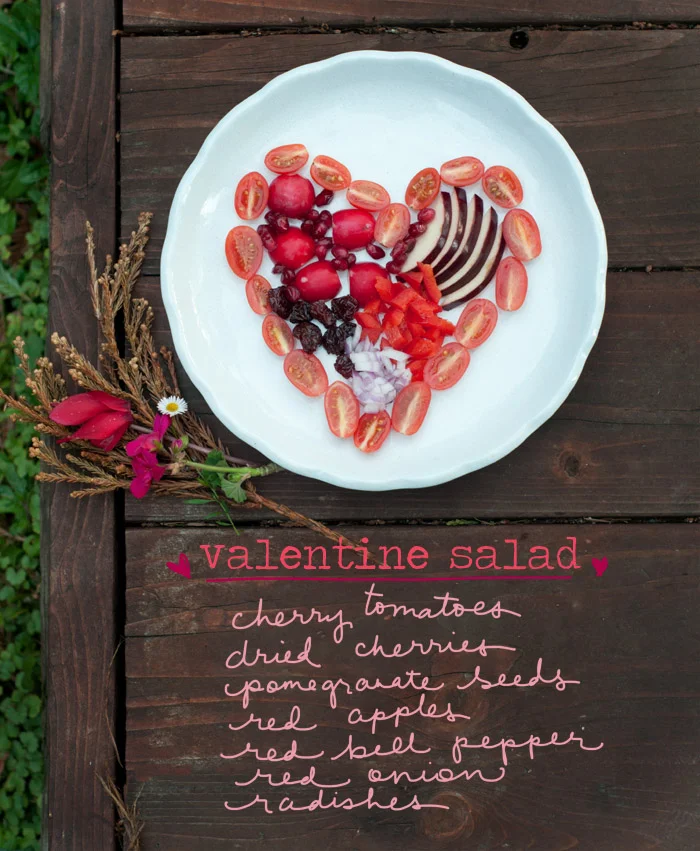 valentine salad
cherry tomatoes
dried cherries
pomegranate seeds
red apples
red bell pepper
red onion
radishes